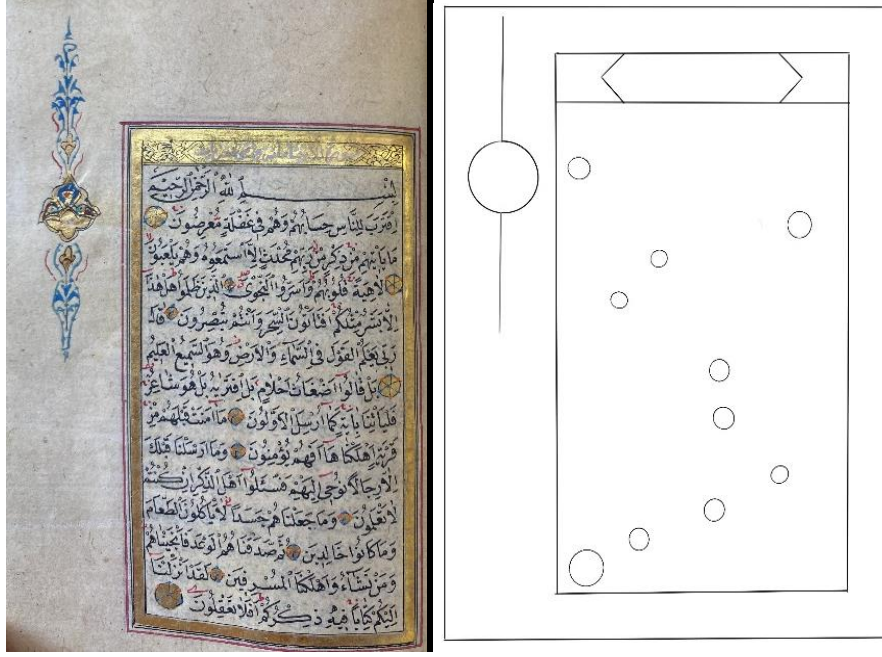 بسم الله الرحمن الرحيم
اقترب للناس حسابهم وهم في غفلة معرضون
ما يأتيهم من ذكر من ربهم محدث إلا استمعوه وهم يلعبون
لاهية قلوبهم وأسروا النجوى الذين ظلموا هل هذا
إلا بشر مثلكم أفتأتون السحر وأنتم تبصرون قال
ربي يعلم القول في السماء والأرض وهو السميع العليم
بل قالوا أضغاث أحلام بل افتريه بل هو شاعر
فليأتنا بآية كما أرسل الأولون ما آمنت قبلهم من
قرية أهلكناها أفهم يؤمنون وما أرسلنا قبلك
إلا رجالا نوحي إليهم فسئلوا أهل الذكر إن كنتم
لا تعلمون وما جعلناهم جسدا لا يأكلون الطعام
وما كانوا خالدين ثم صدقناهم الوعد فأنجيناهم
ومن نشاء وأهلكنا المسرفين لقد أنزلنا
إليكم كتابا فيه ذكركم أفلا تعقلون